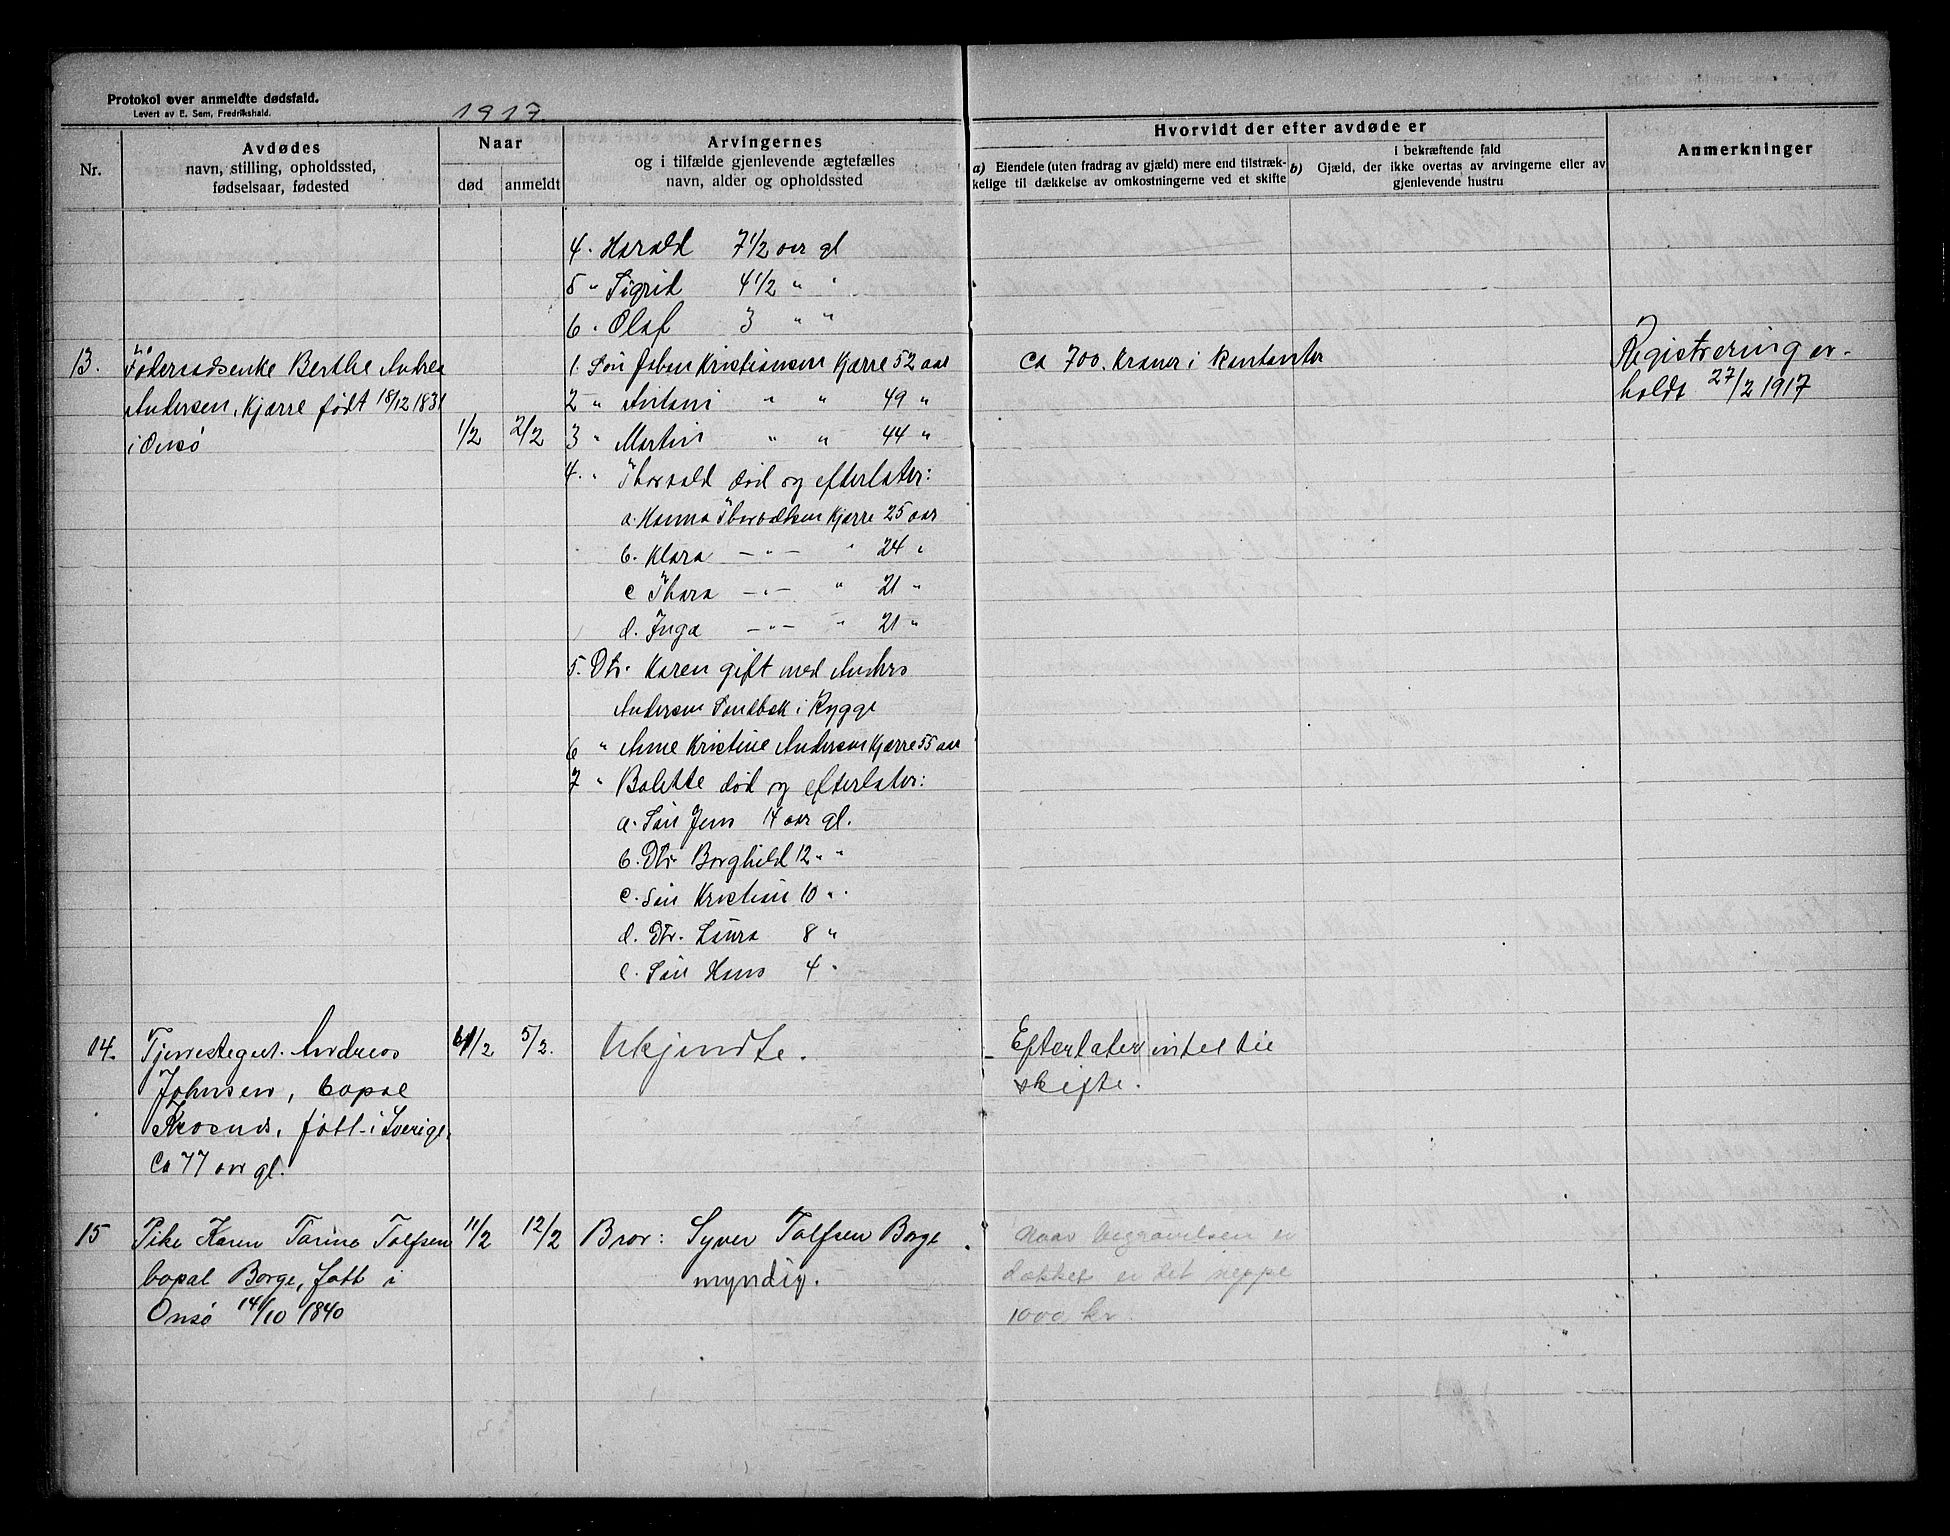 Protokol over anmeldte dødsfald.
Levert av E. Sem, Fredrikshald.
1917
Nr.
Avdødes
navn, stilling, opholdssted,
fødselsaar, fødested
Naar
død
anmeldt
Arvingernes
og i tilfælde gjenlevende ægtefælles
navn, alder og opholdssted
Hvorvidt der efter avdøde er
a) Eiendele (uten fradrag av gjæld) mere end tilstræk-
kelige til dækkelse av omkostningerne ved et skifte
i bekræftende fald
b) Gjæld, der ikke overtas av arvingerne eller av
gjenlevende hustru
Anmerkninger
4. Harald 7 1/2 aar gl
5 " Sigrid 4 1/2 " "
6. Olaf 3 " "
13.
Føderaadsenke Berthe Andrea
Andersen, Kjærre født 18/12 1831
i Onsø
1/2
2/2
1. Søn Johan Kristiansen Kjærre 52 aar
2 " Antani " " 49 "
3 " Martin " " 44 "
4. " Thorvald død og efterlater:
a. Hanna Thorvaldsen Kjærre 25 aar
b. Klara — " — " 24 "
c Thora — " — " 21 "
d. Inga — " — " 21 "
5. Dtr. Karen gift med Anders
Andersen Sandbæk i Rygge
6 " Anne Kristine Andersen Kjærre 55 aar
7 " Bolette død og efterlater:
a. Søn Jens 14 aar gl.
b. Dtr Borghild 12 " "
c. Søn Kristian 10 " "
d. Dtr. Laura 8 "
e. Søn Hans 4 "
ca 700. kroner i kontanter
Registrering er-
holdt 27/2 1917
14.
Tjenestegut. Andreas
Johnsen, bopæl
født i Sverige,
Ca 77 aar gl.
4/2
5/2.
Ukjendte.
Efterlater intet til
skifte.
15
Pike Karen Torine Tolfsen
bopæl Borge, født i
Onsø 14/10 1840
11/2
12/2
Bror: Syver Tolfsen Borge
myndig.
Naar begravelsen er
dækket er det neppe
1000 kr.